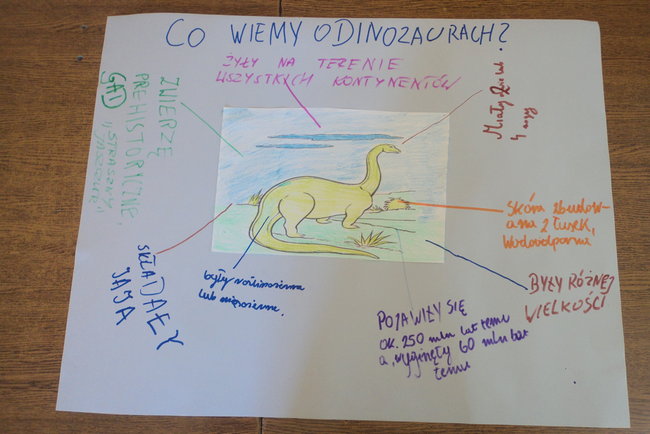 CO WIEMY O DINOZAURACH?
ŻYŁY NA TERENIE
WSZYSTKICH KONTYNENTÓW
Miały dwie lub
4 nogi
ZWIERZĘ
PREHISTORYCZNE,
GAD
"STRASZNY
JASZCZUR"
SKŁADAŁY
JAJA
były roślinożerne
lub mięsożerne.
Skóra zbudow-
ana z łusek,
Wodoodporna
BYŁY RÓŻNEJ
WIELKOŚCI
POJAWIŁY SIĘ
ok. 250 mln lat temu
a wyginęły 60 mln lat
temu